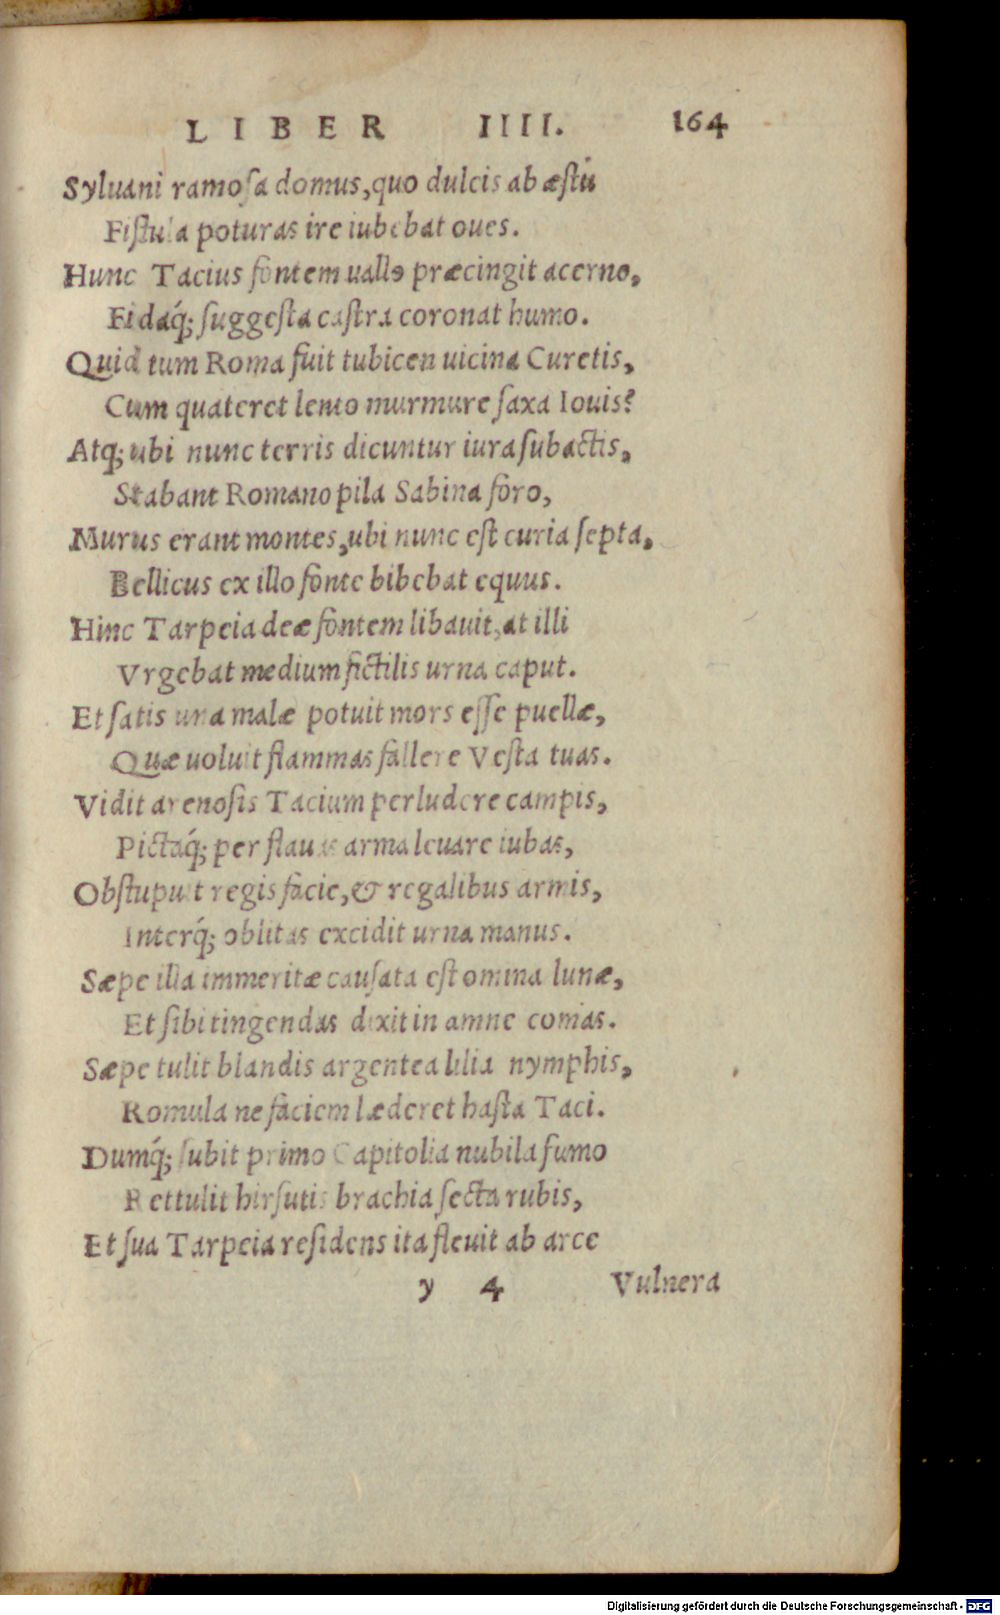 LIBER IIII. 164
Syluani ramosa domus, quo dulcis ab æstu
Fistula poturas ire iubebat oues.
Hunc Tacius fontem uallo præcingit acerno,
Fidaq́; suggesta castra coronat humo.
Quid tum Roma fuit tubicen uicina Curetis,
Cum quateret lento murmure saxa Iouis?
Atq; ubi nunc terris dicuntur iura subactis,
Stabant Romano pila Sabina foro,
Murus erant montes, ubi nunc est curia septa,
Bellicus ex illo fonte bibebat equus.
Hinc Tarpeia deæ fontem libauit, at illi
Vrgebat medium fictilis urna caput.
Et satis una malæ potuit mors esse puellæ,
Quæ uoluit flammas fallere Vesta tuas.
Vidit arenosis Tacium perludere campis,
Pictaq́; per flauas arma leuare iubas,
Obstupuit regis facie, & regalibus armis,
Interq́; oblitas excidit urna manus.
Sæpe illa immeritæ causata est omina lunæ,
Et sibi tingendas dixit in amne comas.
Sæpe tulit blandis argentea lilia nymphis,
Romula ne faciem læderet hasta Taci.
Dumq́; subit primo Capitolia nubila fumo
Rettulit hirsutis brachia secta rubis,
Et sua Tarpeia residens ita fleuit ab arce
y 4 Vulnera
Digitalisierung gefördert durch die Deutsche Forschungsgemeinschaft - DFG